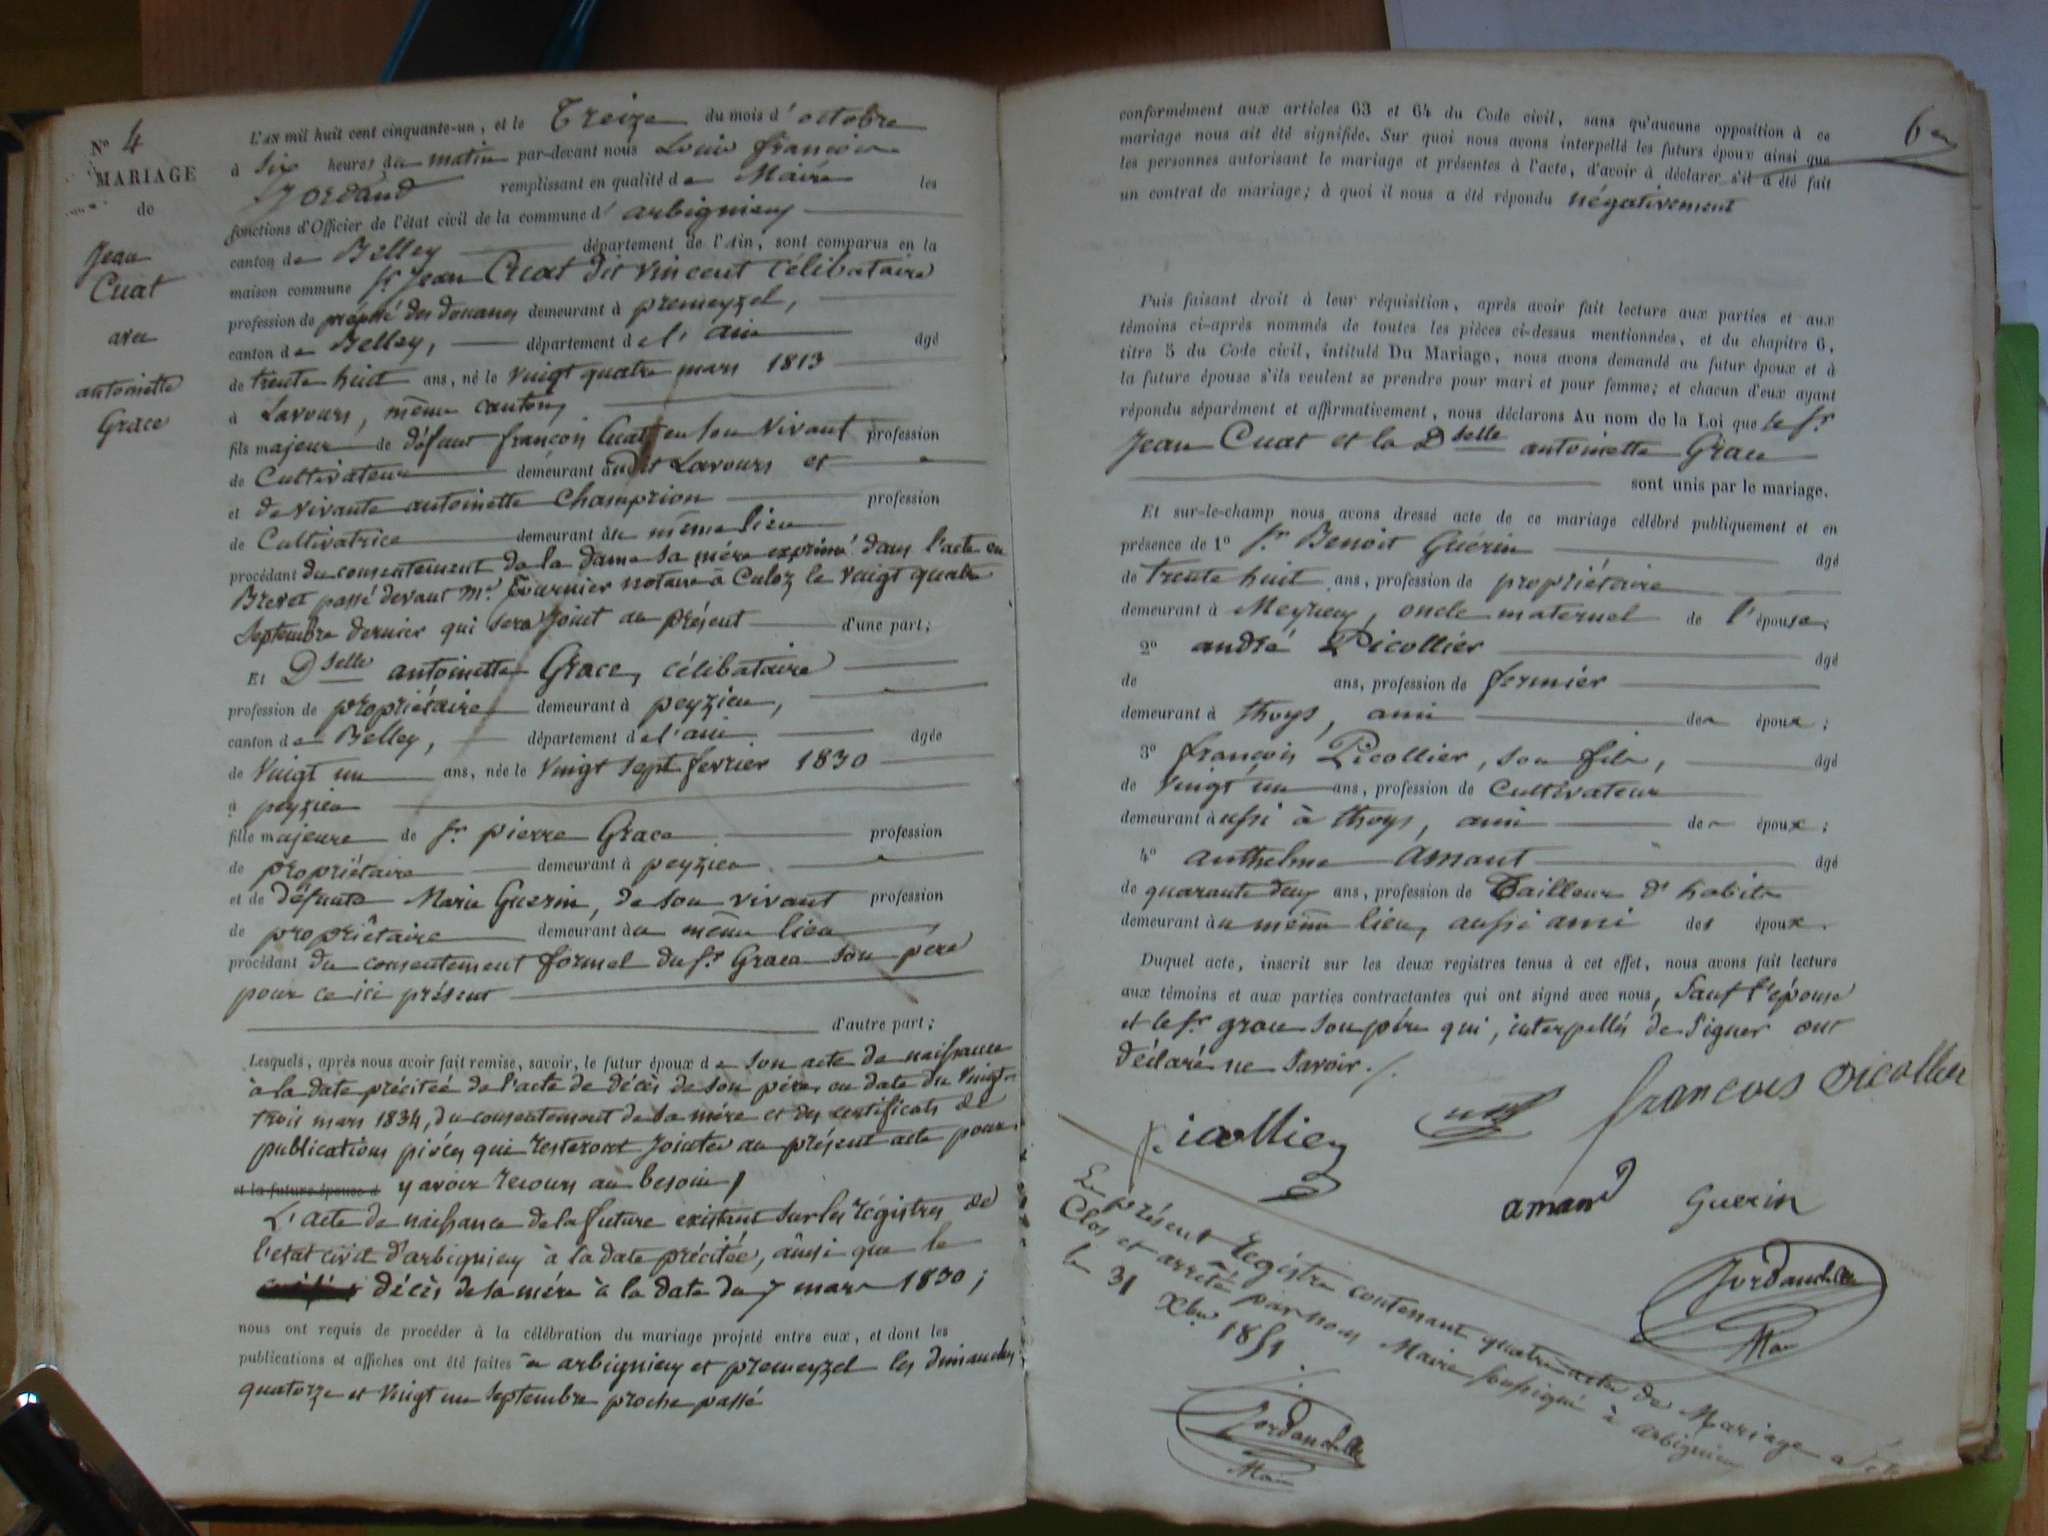 N° 4
MARIAGE
de
Jean
Cuat
avec
antoinette
Grace
L'AN mil huit cent cinquante-un, et le Treize du mois d'octobre
à six heures du matin par-devant nous Louis françois
Jordand remplissant en qualité de Maire les
fonctions d'Officier de l'état civil de la commune d'arbignieu
canton de Belley département de l'Ain, sont comparus en la
maison commune Sr Jean Cuat dit vincent célibataire
profession de préposé des douanes demeurant à premeyzel,
canton de Belley, département de l'ain âgé
de trente huit ans, né le vingt quatre mars 1813
à Lavours, même canton
fils majeur de défunt françois Cuat en son vivant profession
de Cultivateur demeurant audit Lavours et
et de vivante antoinette Champion profession
de Cultivatrice demeurant au même lieu
procédant du consentement de la dame sa mère exprimé dans l'acte en
Brevet passé devant Mr. Fournier notaire à Culoz le vingt quatre
septembre dernier qui sera joint au présent d'une part;
Et Dselle antoinette Grace, célibataire
profession de propriétaire demeurant à peyzieu,
canton de Belley, département de l'ain âgée
de vingt un ans, née le vingt sept fevrier 1830
à peyzieu
fille majeure de Sr pierre Grace profession
de propriétaire demeurant à peyzieu
et de défunte Marie Guerin, de son vivant profession
de propriétaire demeurant au même lieu
procédant du consentement formel du Sr Grace son père
pour ce ici présent
d'autre part;
Lesquels, après nous avoir fait remise, savoir, le futur époux de son acte de naissance
à la date précitée de l'acte de décès de son père, en date du vingt
trois mars 1834, du consentement de sa mère et des certificats de
publications pièces qui resteront jointes au présent acte pour
et la future épouse d y avoir recours au besoin,
L'acte de naissance de la future existant sur les régistres de
l'état civil d'arbignieu à la date précitée, ainsi que le
décès de sa mère à la date du 7 mars 1830;
nous ont requis de procéder à la célébration du mariage projeté entre eux, et dont les
publications et affiches ont été faites à arbignieu et premeyzel les dimanches
quatorze et vingt un septembre proche passé
6
conformément aux articles 63 et 64 du Code civil, sans qu'aucune opposition à ce
mariage nous ait été signifiée. Sur quoi nous avons interpellé les futurs époux ainsi que
les personnes autorisant le mariage et présentes à l'acte, d'avoir à déclarer s'il a été fait
un contrat de mariage; à quoi il nous a été répondu négativement
Puis faisant droit à leur réquisition, après avoir fait lecture aux parties et aux
témoins ci-après nommés de toutes les pièces ci-dessus mentionnées, et du chapitre 6,
titre 5 du Code civil, intitulé Du Mariage, nous avons demandé au futur époux et à
la future épouse s'ils veulent se prendre pour mari et pour femme; et chacun d'eux ayant
répondu séparément et affirmativement, nous déclarons Au nom de la Loi que le Sr
Jean Cuat et la Dselle antoinette Grace
sont unis par le mariage.
Et sur-le-champ nous avons dressé acte de ce mariage célébré publiquement et en
présence de 1° Sr Benoit Guérin âgé
de trente huit ans, profession de propriétaire
demeurant à Meyrieu, oncle maternel de l'épouse;
2° andré Picollier âgé
de ans, profession de fermier
demeurant à thoys, ami des époux;
3° françois Picollier, son fils, âgé
de vingt un ans, profession de Cultivateur
demeurant aussi à thoys, ami des époux;
4° anthelme Amant âgé
de quarante deux ans, profession de Tailleur d'habits
demeurant au même lieu, aussi ami des époux.
Duquel acte, inscrit sur les deux registres tenus à cet effet, nous avons fait lecture
aux témoins et aux parties contractantes qui ont signé avec nous, Sauf l'épouse
et le Sr grace son père qui, interpellés de Signer ont
déclaré ne savoir./.
françois picollier
picollier
amand Guerin
Jordand
Maire
Le présent Registre contenant quatre actes de Mariage a été
Clos et arrêté par nous Maire soussigné à arbignieu
le 31 Xbre 1851.
Jordand
Maire